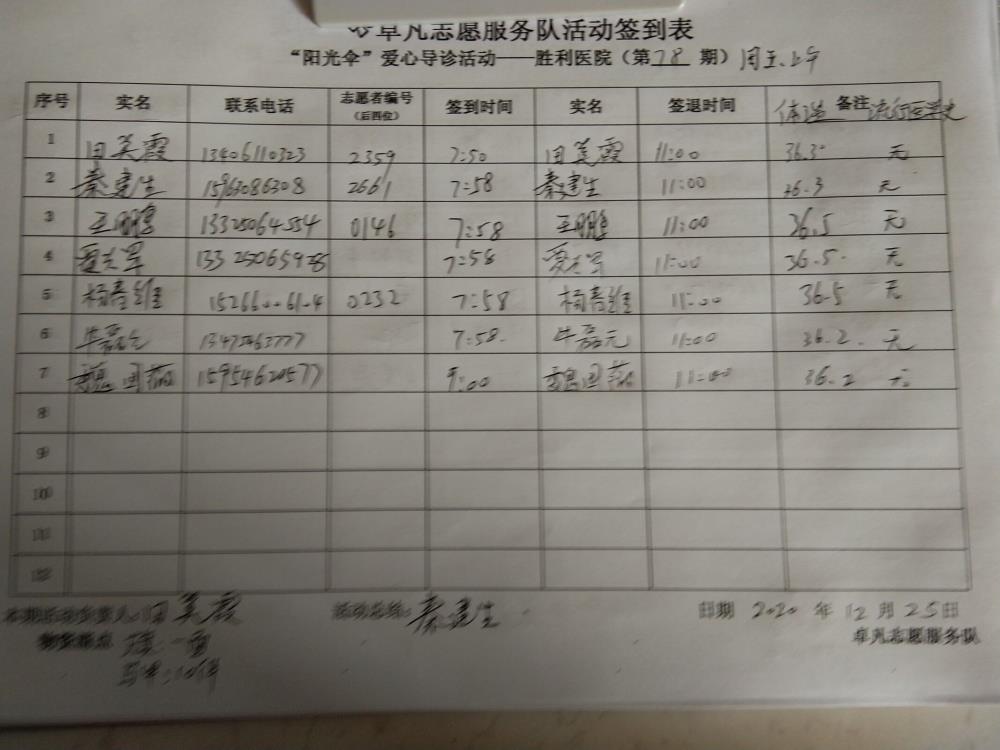 卓凡志愿服务队活动签到表
“阳光伞”爱心导诊活动——胜利医院（第78期）周五上午
序号 实名 联系电话 志愿者编号（后四位） 签到时间 实名 签退时间 体温 备注 流行医学史
1 田美霞 13406110323 2359 7:50 田美霞 11:00 36.3° 无
2 秦建生 15963086308 2661 7:58 秦建生 11:00 36.3 无
3 王鹏 13325064554 0146 7:58 王鹏 11:00 36.5 无
4 7:58 11:00 36.5 无
5 杨春维 0232 7:58 杨春维 11:00 36.5 无
6 牛磊元 7:58 牛磊元 11:00 36.2 无
7 魏国 15954620577 9:00 魏国 11:00 36.2 无
8
9
10
11
12
本期活动负责人：田美霞 活动总结：秦建生 日期 2020 年 12 月 25 日
卓凡志愿服务队